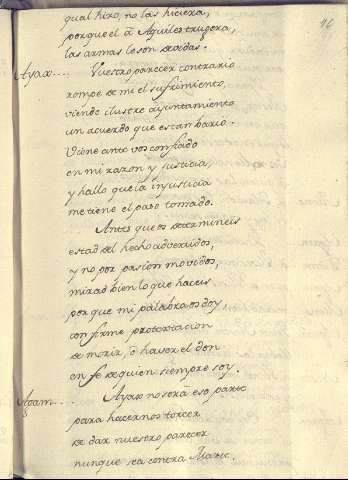 qual hizo, no las hiciera,
porque el á Aquiles truxera,
las armas le son deuidas.
Ayax.... Vuestro parecer contrario
rompe de mi el sufrimiento,
viendo ilustre ayuntamiento
un acuerdo que es tan bario.
Vine ante vos confiado
en mi razon y justicia,
y hallo que la injusticia
me tiene el paso tomado.
Antes que os determineis
estad del hecho aduertidos,
y no por pasion movidos,
mirad bien lo que haceis
porque mi palabra os doy,
con firme protextacion
de morir, ó haver el don
en fe de quien siempre soy.
Agam.... Ayax no será eso parte
para hacernos torcer
de dar nuestro parecer
aunque sea contra Marte.